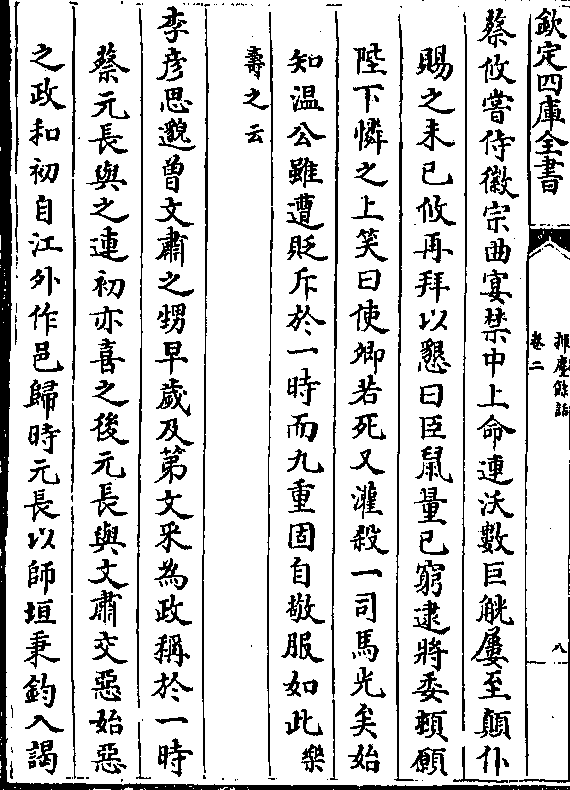 欽定四庫全書
揮麈餘話
卷二
八
蔡攸嘗侍徽宗曲宴禁中上命連沃數巨觥屢至顛仆
賜之未已攸再拜以懇曰臣鼠量已窮逮將委頓願
陛下憐之上笑曰使卿若死又灌殺一司馬光矣始
知温公雖遭貶斥於一時而九重固自敬服如此樂
壽之云
李彦思邈曾文肅之甥早歲及第文采為政稱於一時
蔡元長與之連初亦喜之後元長與文肅交惡始惡
之政和初自江外作邑歸時元長以師垣秉鈞入謁